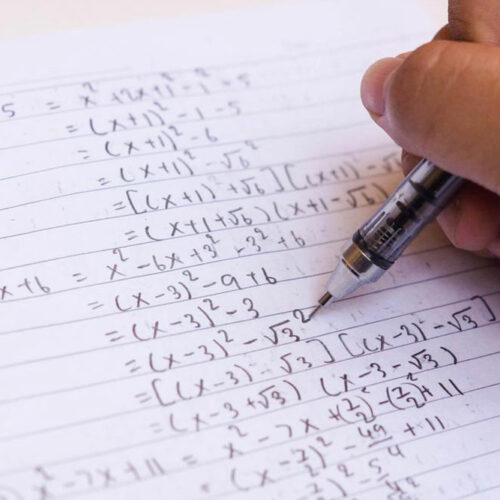 5 = x² + 2x + 1² - 1² - 5
= (x+1)² - 1 - 5
= (x+1)² - 6
= (x+1)² - √6²
= [(x+1) + √6] [(x+1) - √
= (x+1+√6) (x+1-√6)
x + 6 = x² - 6x + 3² - 3² + 6
= (x-3)² - 9 + 6
= (x-3)² - 3
= (x-3)² - √3²
= [(x-3) - √3] [(x-3) - √3]
= (x-3+√3) (x-3-√3)
x² - 7x + 11 = x² - 7x + (7/2)² - (7/2)² + 11
= (x-7/2)² - 49/4 + 11
5/4